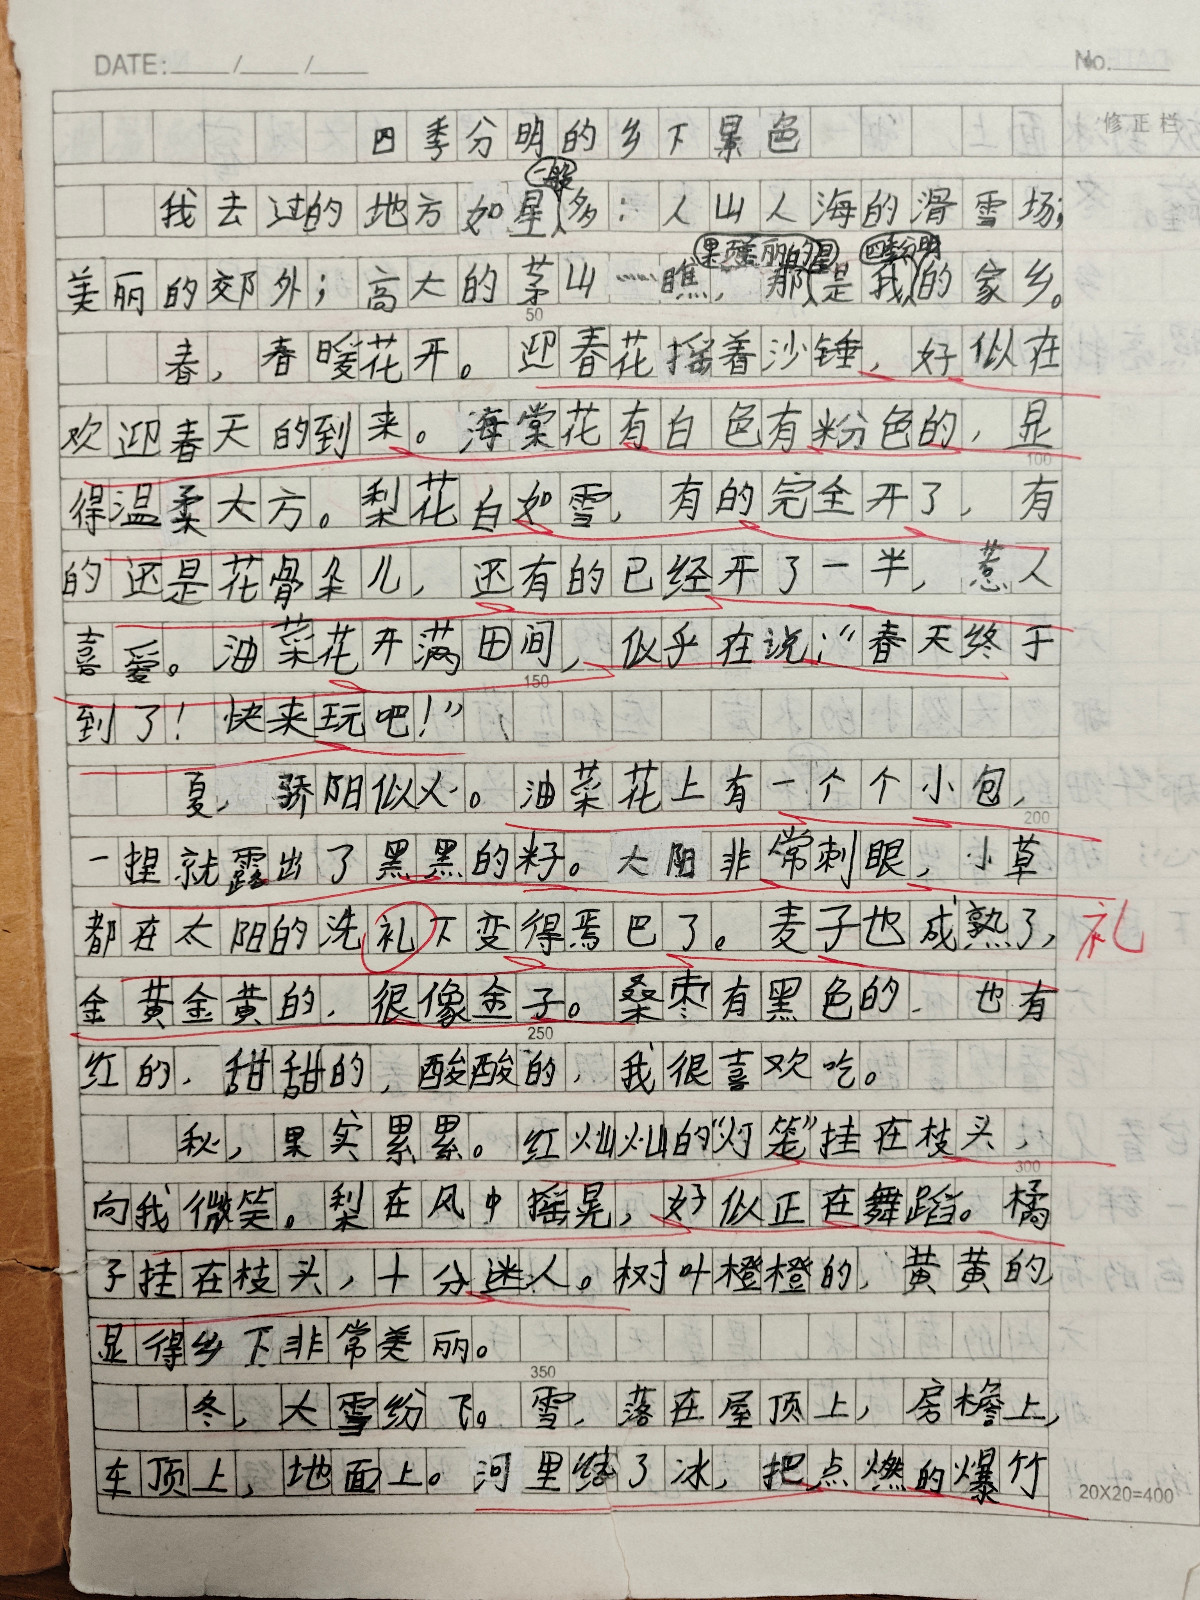 DATE:____/____/____
No.____
修正栏
四季分明的乡下景色
一般
我去过的地方如星多：人山人海的滑雪场；
最美丽的是 四季分明
美丽的郊外；高大的茅山……瞧，那是我的家乡。
50
春，春暖花开。迎春花摇着沙锤，好似在
欢迎春天的到来。海棠花有白色有粉色的，显
100
得温柔大方。梨花白如雪，有的完全开了，有
的还是花骨朵儿，还有的已经开了一半，惹人
喜爱。油菜花开满田间，似乎在说：“春天终于
150
到了！快来玩吧！”
夏，骄阳似火。油菜花上有一个个小包，
200
一捏就露出了黑黑的籽。太阳非常刺眼，小草
都在太阳的洗礼下变得焉巴了。麦子也成熟了，
礼
金黄金黄的，很像金子。桑枣有黑色的，也有
250
红的，甜甜的，酸酸的，我很喜欢吃。
秋，果实累累。红灿灿的“灯笼”挂在枝头，
300
向我微笑。梨在风中摇晃，好似正在舞蹈。橘
子挂在枝头，十分迷人。树叶橙橙的，黄黄的，
显得乡下非常美丽。
350
冬，大雪纷飞。雪，落在屋顶上，房檐上，
车顶上，地面上。河里结了冰，把点燃的爆竹
20X20=400